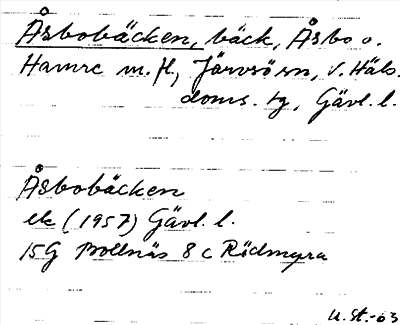 Åsbobäcken, bäck, Åsbo o.
Hamre m. fl., Järvsö sn, V. Häls.
doms. tg, Gävl. l.
Åsbobäcken
ek (1957) Gävl. l.
15G Bollnäs 8 c Rödmyra
U. St. -63